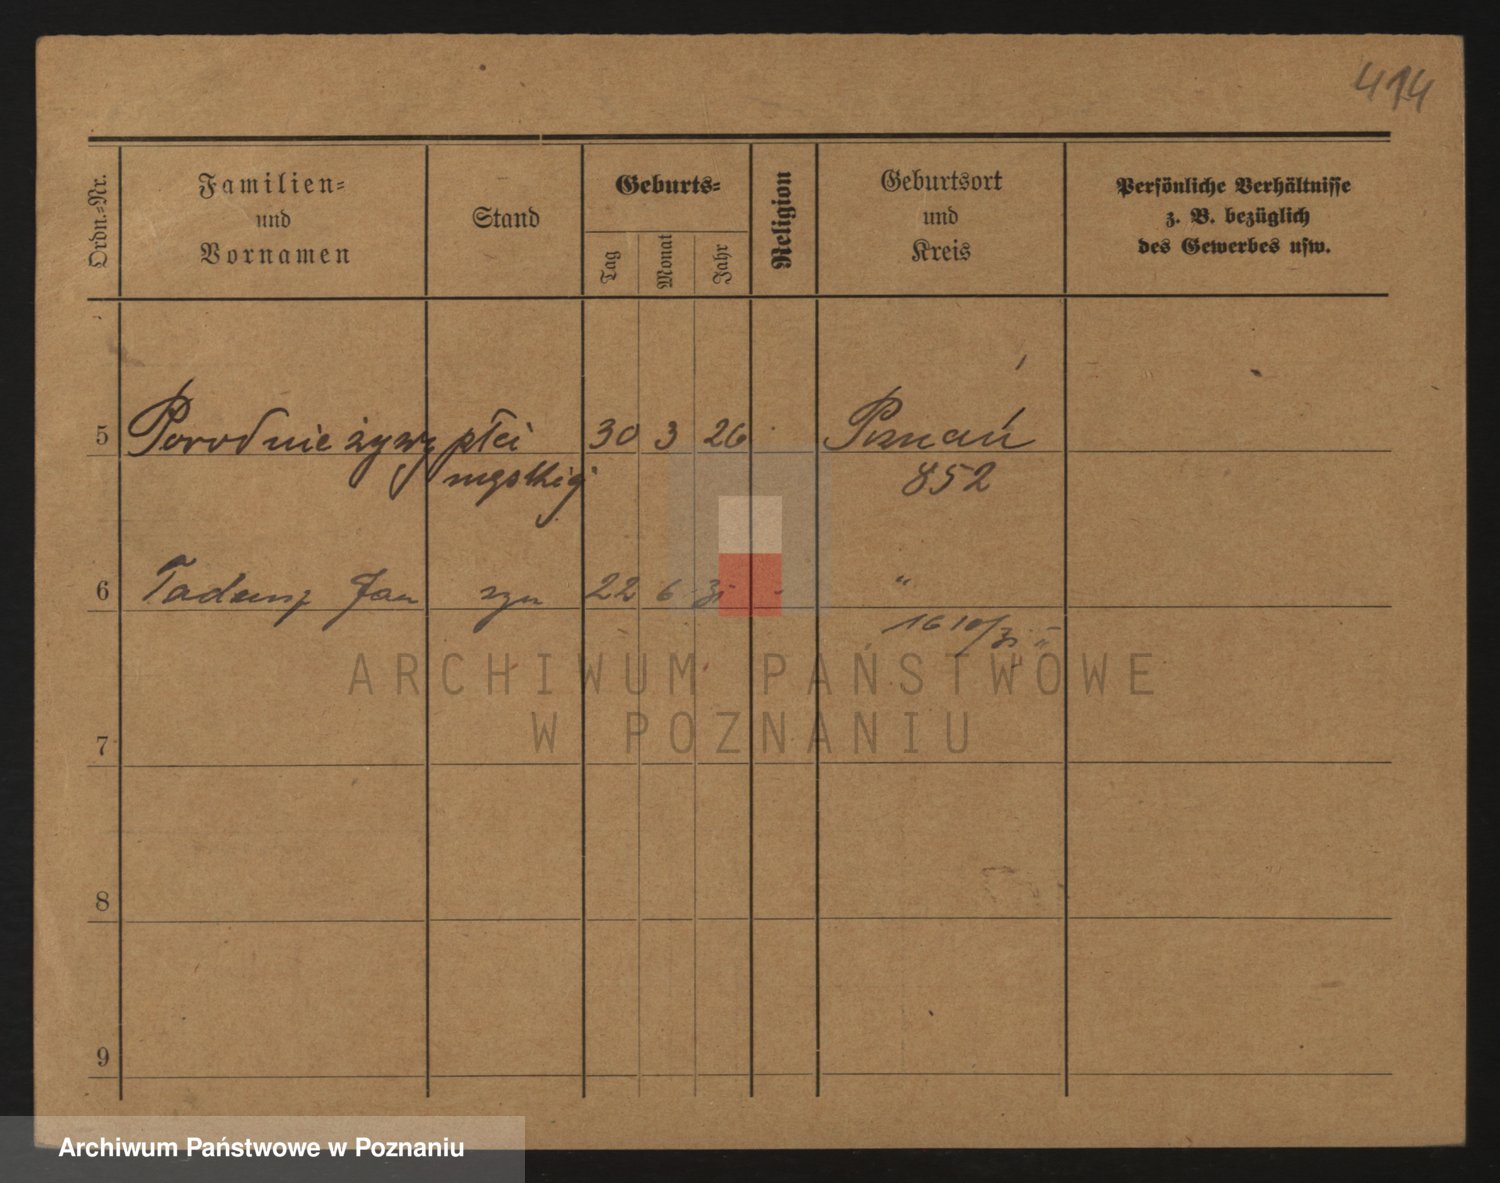 414
Ordn.-Nr.
Familien-
und
Vornamen
Stand
Geburts-
Tag
Monat
Jahr
Religion
Geburtsort
und
Kreis
Persönliche Verhältnisse
z. B. bezüglich
des Gewerbes usw.
5 Porodnie żywy płci 30 3 26 Poznań
męskiej 852
6 Tadeusz Jan syn 22 6 31 - "
1610/31
ARCHIWUM PAŃSTWOWE
W POZNANIU
7
8
9
Archiwum Państwowe w Poznaniu